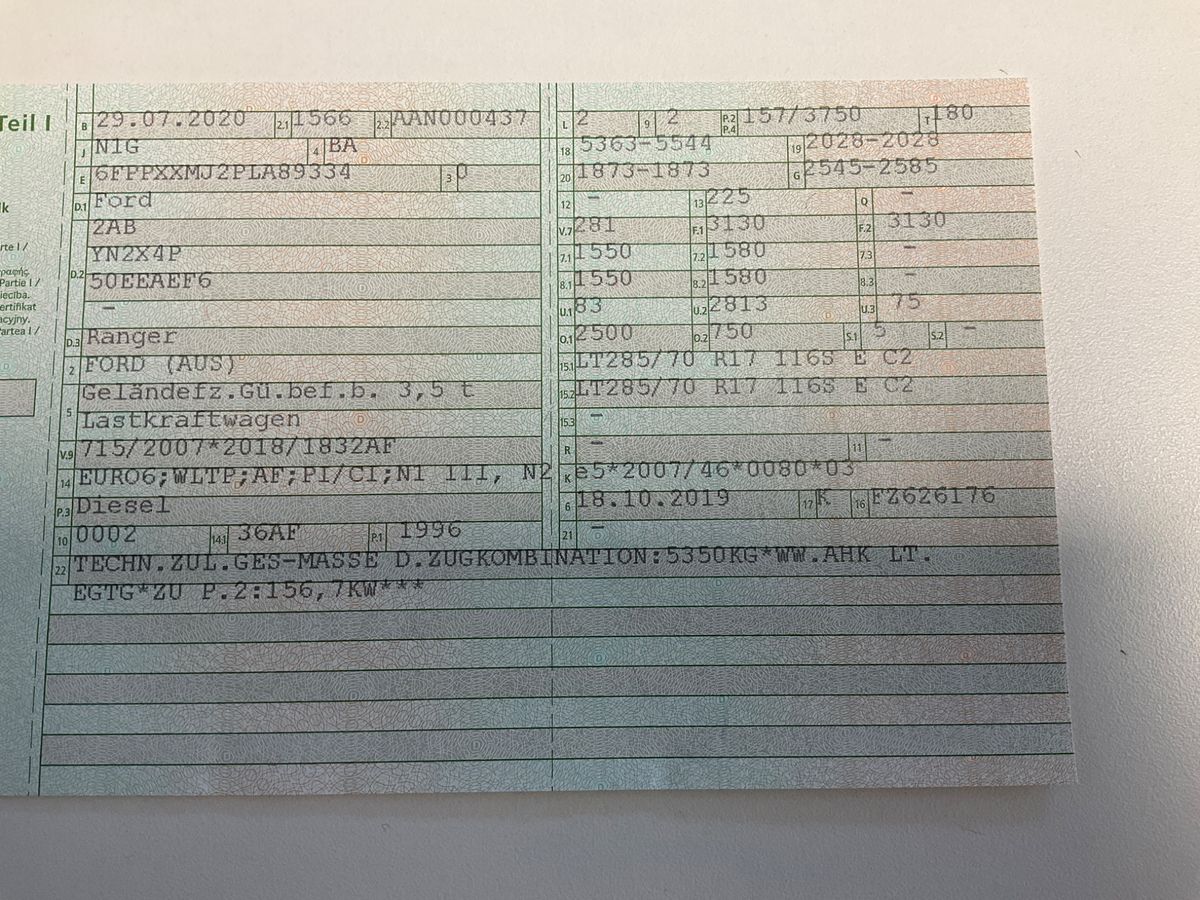 Teil I
B 29.07.2020 2.1 1566 2.2 AAN000437
J N1G 4 BA
E 6FPPXXMJ2PLA89334 3 0
D.1 Ford
2AB
D.2 YN2X4P
50EEAEF6
–
D.3 Ranger
2 FORD (AUS)
5 Geländefz.Gü.bef.b. 3,5 t
Lastkraftwagen
V.9 715/2007*2018/1832AF
14 EURO6;WLTP;AF;PI/CI;N1 III, N2
P.3 Diesel
10 0002 14.1 36AF P.1 1996
L 2 9 2 P.2 P.4 157/3750 T 180
18 5363-5544 19 2028-2028
20 1873-1873 G 2545-2585
12 – 13 225 Q –
V.7 281 F.1 3130 F.2 3130
7.1 1550 7.2 1580 7.3 –
8.1 1550 8.2 1580 8.3 –
U.1 83 U.2 2813 U.3 75
O.1 2500 O.2 750 S.1 5 S.2 –
15.1 LT285/70 R17 116S E C2
15.2 LT285/70 R17 116S E C2
15.3 –
R – 11 –
K e5*2007/46*0080*03
6 18.10.2019 17 K 16 FZ626176
21 –
22 TECHN.ZUL.GES-MASSE D.ZUGKOMBINATION:5350KG*WW.AHK LT.
EGTG*ZU P.2:156,7KW***
Partie I /
ecība.
ertifikat
acyjny.
artea I /